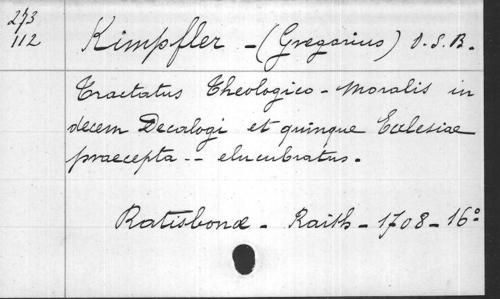 273
112
Kimpfler - (Gregorius) O.S.B.-
Tractatus Theologico-Moralis in
decem Decalogi et quinque Ecclesiae
praecepta -- elucubratus.
Ratisbonæ - Raith - 1708 - 16°